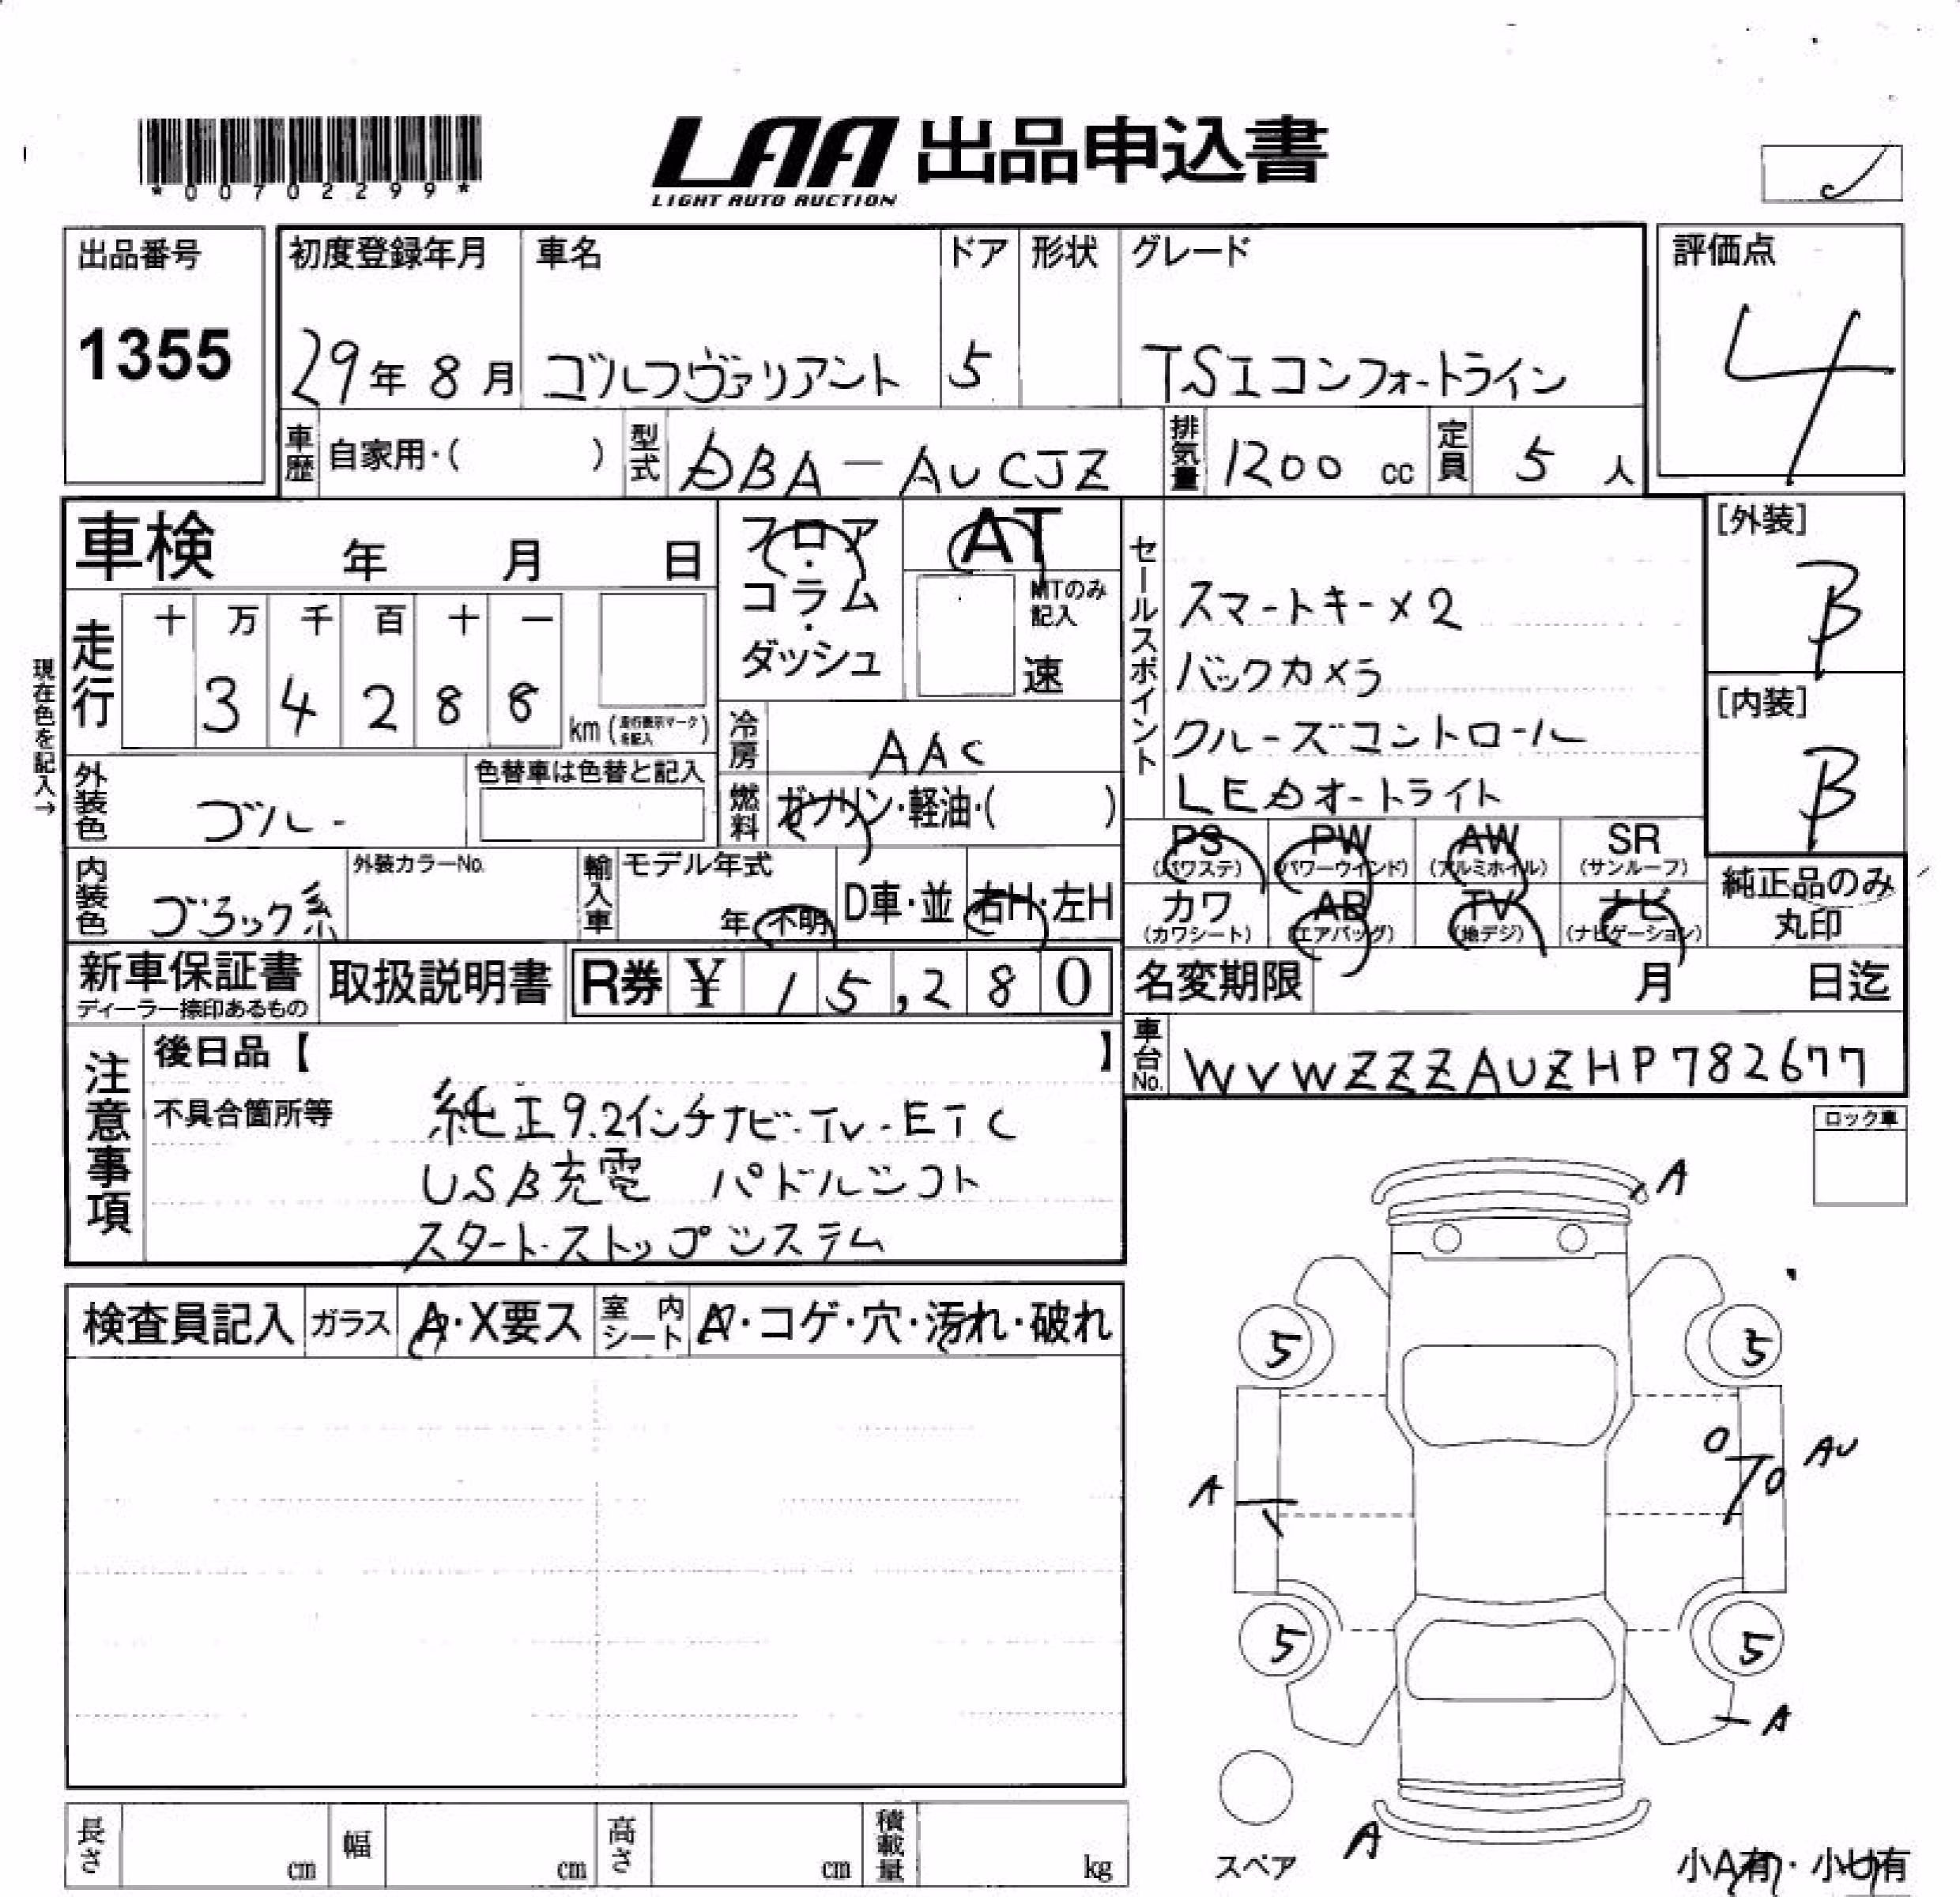 *00702299*
LAA 出品申込書
LIGHT AUTO AUCTION
出品番号
1355
初度登録年月
29年 8月
車名
ゴルフヴァリアント
ドア
5
形状
グレード
TSIコンフォートライン
評価点
4
車歴
自家用・( )
型式
DBA-AUCJZ
排気量
1200 cc
定員
5 人
車検 年 月 日
フロア・コラム・ダッシュ
AT
MTのみ記入
速
セールスポイント
スマートキー×2
バックカメラ
クルーズコントロール
LEDオートライト
[外装]
B
[内装]
B
現在色を記入→
走行
十 万 千 百 十 一
3 4 2 8 8
km (走行表示マークを記入)
冷房
AAC
燃料
ガソリン・軽油・( )
外装色
ブルー
色替車は色替と記入
PS (パワステ)
PW (パワーウインド)
AW (アルミホイル)
SR (サンルーフ)
内装色
ブラック系
外装カラーNo.
輸入車
モデル年式
年 不明
D車・並
右H・左H
カワ (カワシート)
AB (エアバッグ)
TV (地デジ)
ナビ (ナビゲーション)
純正品のみ
丸印
新車保証書
ディーラー捺印あるもの
取扱説明書
R券 ¥ 15,280
名変期限 月 日迄
車台No.
WVWZZZAUZHP782677
注意事項
後日品【 】
不具合箇所等
純正9.2インチナビ・TV・ETC
USB充電 パドルシフト
スタート・ストップシステム
ロック車
検査員記入
ガラス
A・X要ス
室内シート
A・コゲ・穴・汚れ・破れ
A
5
5
A
AU
5
5
A
A
スペア
長さ cm
幅 cm
高さ cm
積載量 kg
小A有・小U有